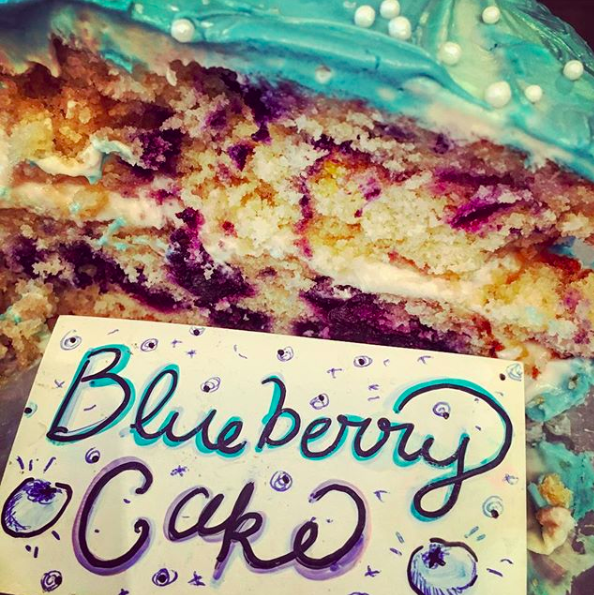 Blueberry
Cake